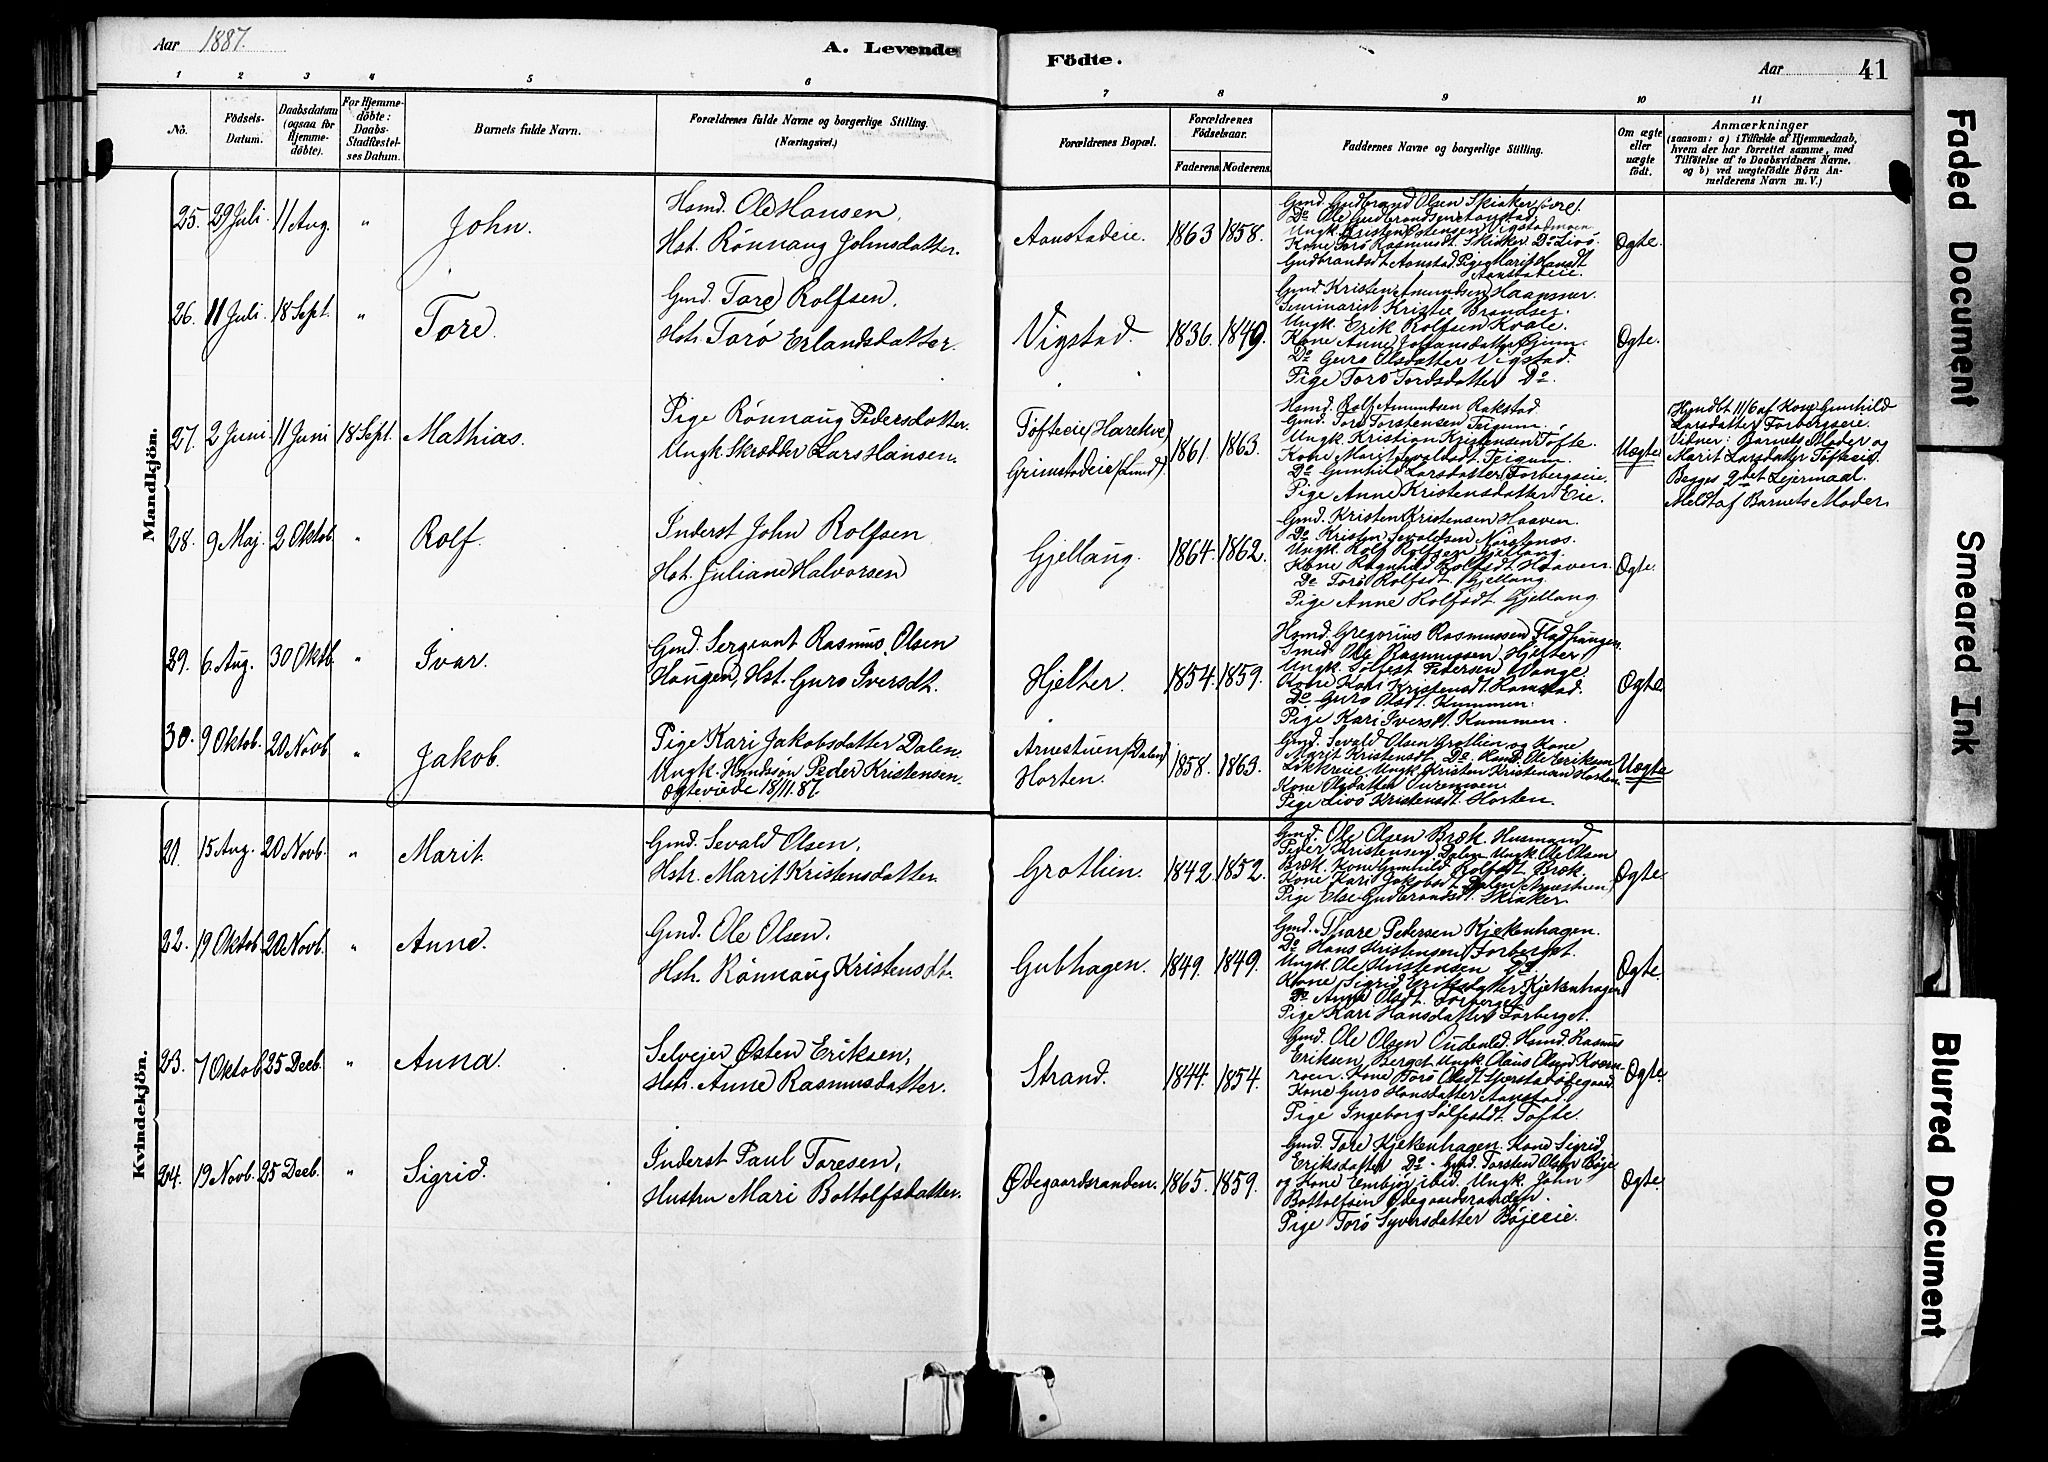 Aar 1887.
A. Levende
Födte.
Aar
41
1 2 3 4 5 6 7 8 9 10 11
No.
Födsels-
Datum.
Daabsdatum
(ogsaa for
Hjemme-
döbte).
For Hjemme-
döbte:
Daabs-
Stadfæstel-
ses Datum.
Barnets fulde Navn.
Forældrenes fulde Navne og borgerlige Stilling.
(Næringsvei.)
Forældrenes Bopæl.
Forældrenes
Födselsaar.
Faderens. Moderens.
Faddernes Navne og borgerlige Stilling.
Om ægte
eller
uægte
födt.
Anmærkninger
(saasom: a) i Tilfælde af Hjemmedaab,
hvem der har forrettet samme, med
Tilföielse af to Daabsvidners Navne.
og b) ved uægtefödte Börn An-
melderens Navn m. V.)
Mandkjön.
25. 29 Juli. 11 Aug. " John.
Hsmd. Ole Hansen,
Hst. Rönnaug Johnsdatter.
Aanstadeie. 1863 1858.
Gmd. Gudbrand Olsen Skiaker
Do Ole Gudbrandsen Aanstad.
Ungk. Kristen Ostensen Vigstadmoen
Kone Torö Rasmusdt. Skiaker Do Livö
Gudbrandsdt. Aanstad. Pige Marit Hansdt.
Aanstadeie.
Ægte.
26. 11 Juli. 18 Sept. " Tore.
Gmd. Tore Rolfsen.
Hstr. Torö Erlandsdatter.
Vigstad. 1836. 1849.
Gmd. Kristen Amundsen Haapmer.
Seminarist Kristie Brandsej.
Ungk. Erik Rolfsen Kvale.
Kone Anne Johansdatter
Do Guro Olsdatter Vigstad.
Pige Torö Tordsdatter Do.
Ægte.
27. 2 Juni 11 Juni 18 Sept. Mathias.
Pige Rönnaug Pedersdatter.
Ungk. Skrædder Lars Hansen.
Tofteeie (Harekve)
Grimstadeie (Lund).
1861. 1863.
Hsmd. Rolf Amundsen Rakstad.
Gmd. Tore Torstensen Teigum.
Ungk. Kristian Kristensen Tofte.
Kone Marit Sevaldsdt. Teigum.
Do Gunhild Larsdatter Forbergseie.
Pige Anne Kristensdatter Eie.
Uægte
Hjmdbt 11/6 af Kone Gunhild
Larsdatter Forbergseie.
Vidner: Barnets Moder og
Marit Larsdatter Tofteeie.
Begges 2det Lejermaal.
Meldt af Barnets Moder.
28. 9 Maj. 2 Oktob. " Rolf.
Inderst John Rolfsen
Hst. Juliane Halvorsen
Gjellaug. 1864. 1862.
Gmd. Kristen Kristensen Haaven.
Do Kristen Sevaldsen Nörstenös.
Ungk. Rolf Rolfsen Gjellaug.
Kone Ragnhild Rolfsdt. Haaven.
Do Torö Rolfsdt. Gjellaug.
Pige Anne Rolfsdt. Gjellaug
Ægte.
29. 6 Aug. 30 Oktb. " Ivar.
Gmd. Sergeant Rasmus Olsen
Haugen, Hst. Guro Iversdt.
Hjelter. 1854. 1859.
Hsmd. Gregorius Rasmussen
Smed. Ole Rasmussen Hjelter
Ungk. Sölfest Pedersen Vange.
Kone Kari Kristensdt. Ramstad.
Do Guro Olsdt. Kummen.
Pige Kari Iversdt. Kummen.
Ægte
30. 9 Oktob. 20 Novb. " Jakob.
Pige Kari Jakobsdatter Dalen.
Ungk. Hsmdssön Peder Kristensen
Ægteviede 18/11.87.
Arnestuen (Dalen)
Horten.
1858. 1863.
Gmd. Sevald Olsen Grotlien og Kone
Marit Kristensdt. Do. Hsmd. Ole Eriksen
Lökkreeie. Ungk. Kristen Kristensen Horten
Kone Olsdatter Öuremoen.
Pige Livö Kristensdt. Horten.
Uægte
Kvindekjön.
21. 15 Aug. 20 Novb. " Marit.
Gmd. Sevald Olsen,
Hstr. Marit Kristensdatter.
Grotlien. 1842. 1852.
Gmd. Ole Olsen Bræk. Husmand
Peder Kristensen Dalen. Ungk. Ole Olsen
Bræk. Kone Gunhild Rolfsdt. Bræk.
Kone Kari Jakobsdt. Dalen (Arnestuen)
Pige Else Gudbrandsdt. Skiaker.
Ægte
22. 19 Oktob. 20 Novb. " Anne.
Gmd. Ole Olsen.
Hstr. Rönnaug Kristensdt.
Gubhagen. 1849. 1849.
Gmd. Thore Pedersen Kjekenhagen.
Do Hans Kristensen Forberget.
Ungk. Ole Kristensen Do
Kone Sigrid Eriksdatter Kjekenhagen
Do Anne Olsdt. Forberget.
Pige Kari Hansdatter Forberget.
Ægte.
23. 7 Oktob. 25 Decb. " Anna.
Selvejer Østen Eriksen,
Hstr. Anne Rasmusdatter.
Strand. 1844. 1854.
Gmd. Ole Olsen Oudenled. Hsmd. Rasmus
Eriksen Berget. Ungk. Olaus Olsen Kvern-
roen. Kone Torö Olsdt.
Kone Guro Hansdatter Aanstad.
Pige Ingeborg Sölfestdt. Tofte.
Ægte.
24. 19 Novb. 25 Decb. " Sigrid.
Inderst Paul Toresen,
Hustru Mari Bottolfsdatter.
Ødegaardsranden. 1865. 1859.
Gmd. Tore Kjekenhagen. Kone Sigrid
Eriksdatter Do. Gmd. Torsten Olsen Böje
og Kone Embjör ibid. Ungk. John
Bottolfsen Ødegaardsranden.
Pige Torö Syversdatter Böjeeie.
Ægte.
Faded Document
Smeared Ink
Blurred Document